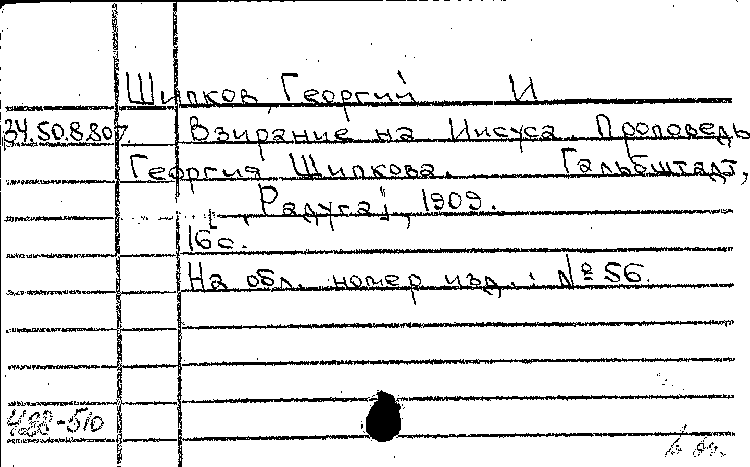 Шипков, Георгий И
34.50.8.807. Взирание на Иисуса. Проповедь
Георгия Шипкова. Гальбштадт,
["Радуга"], 1909.
16с.
На обл. номер изд.: № 56.
488-510